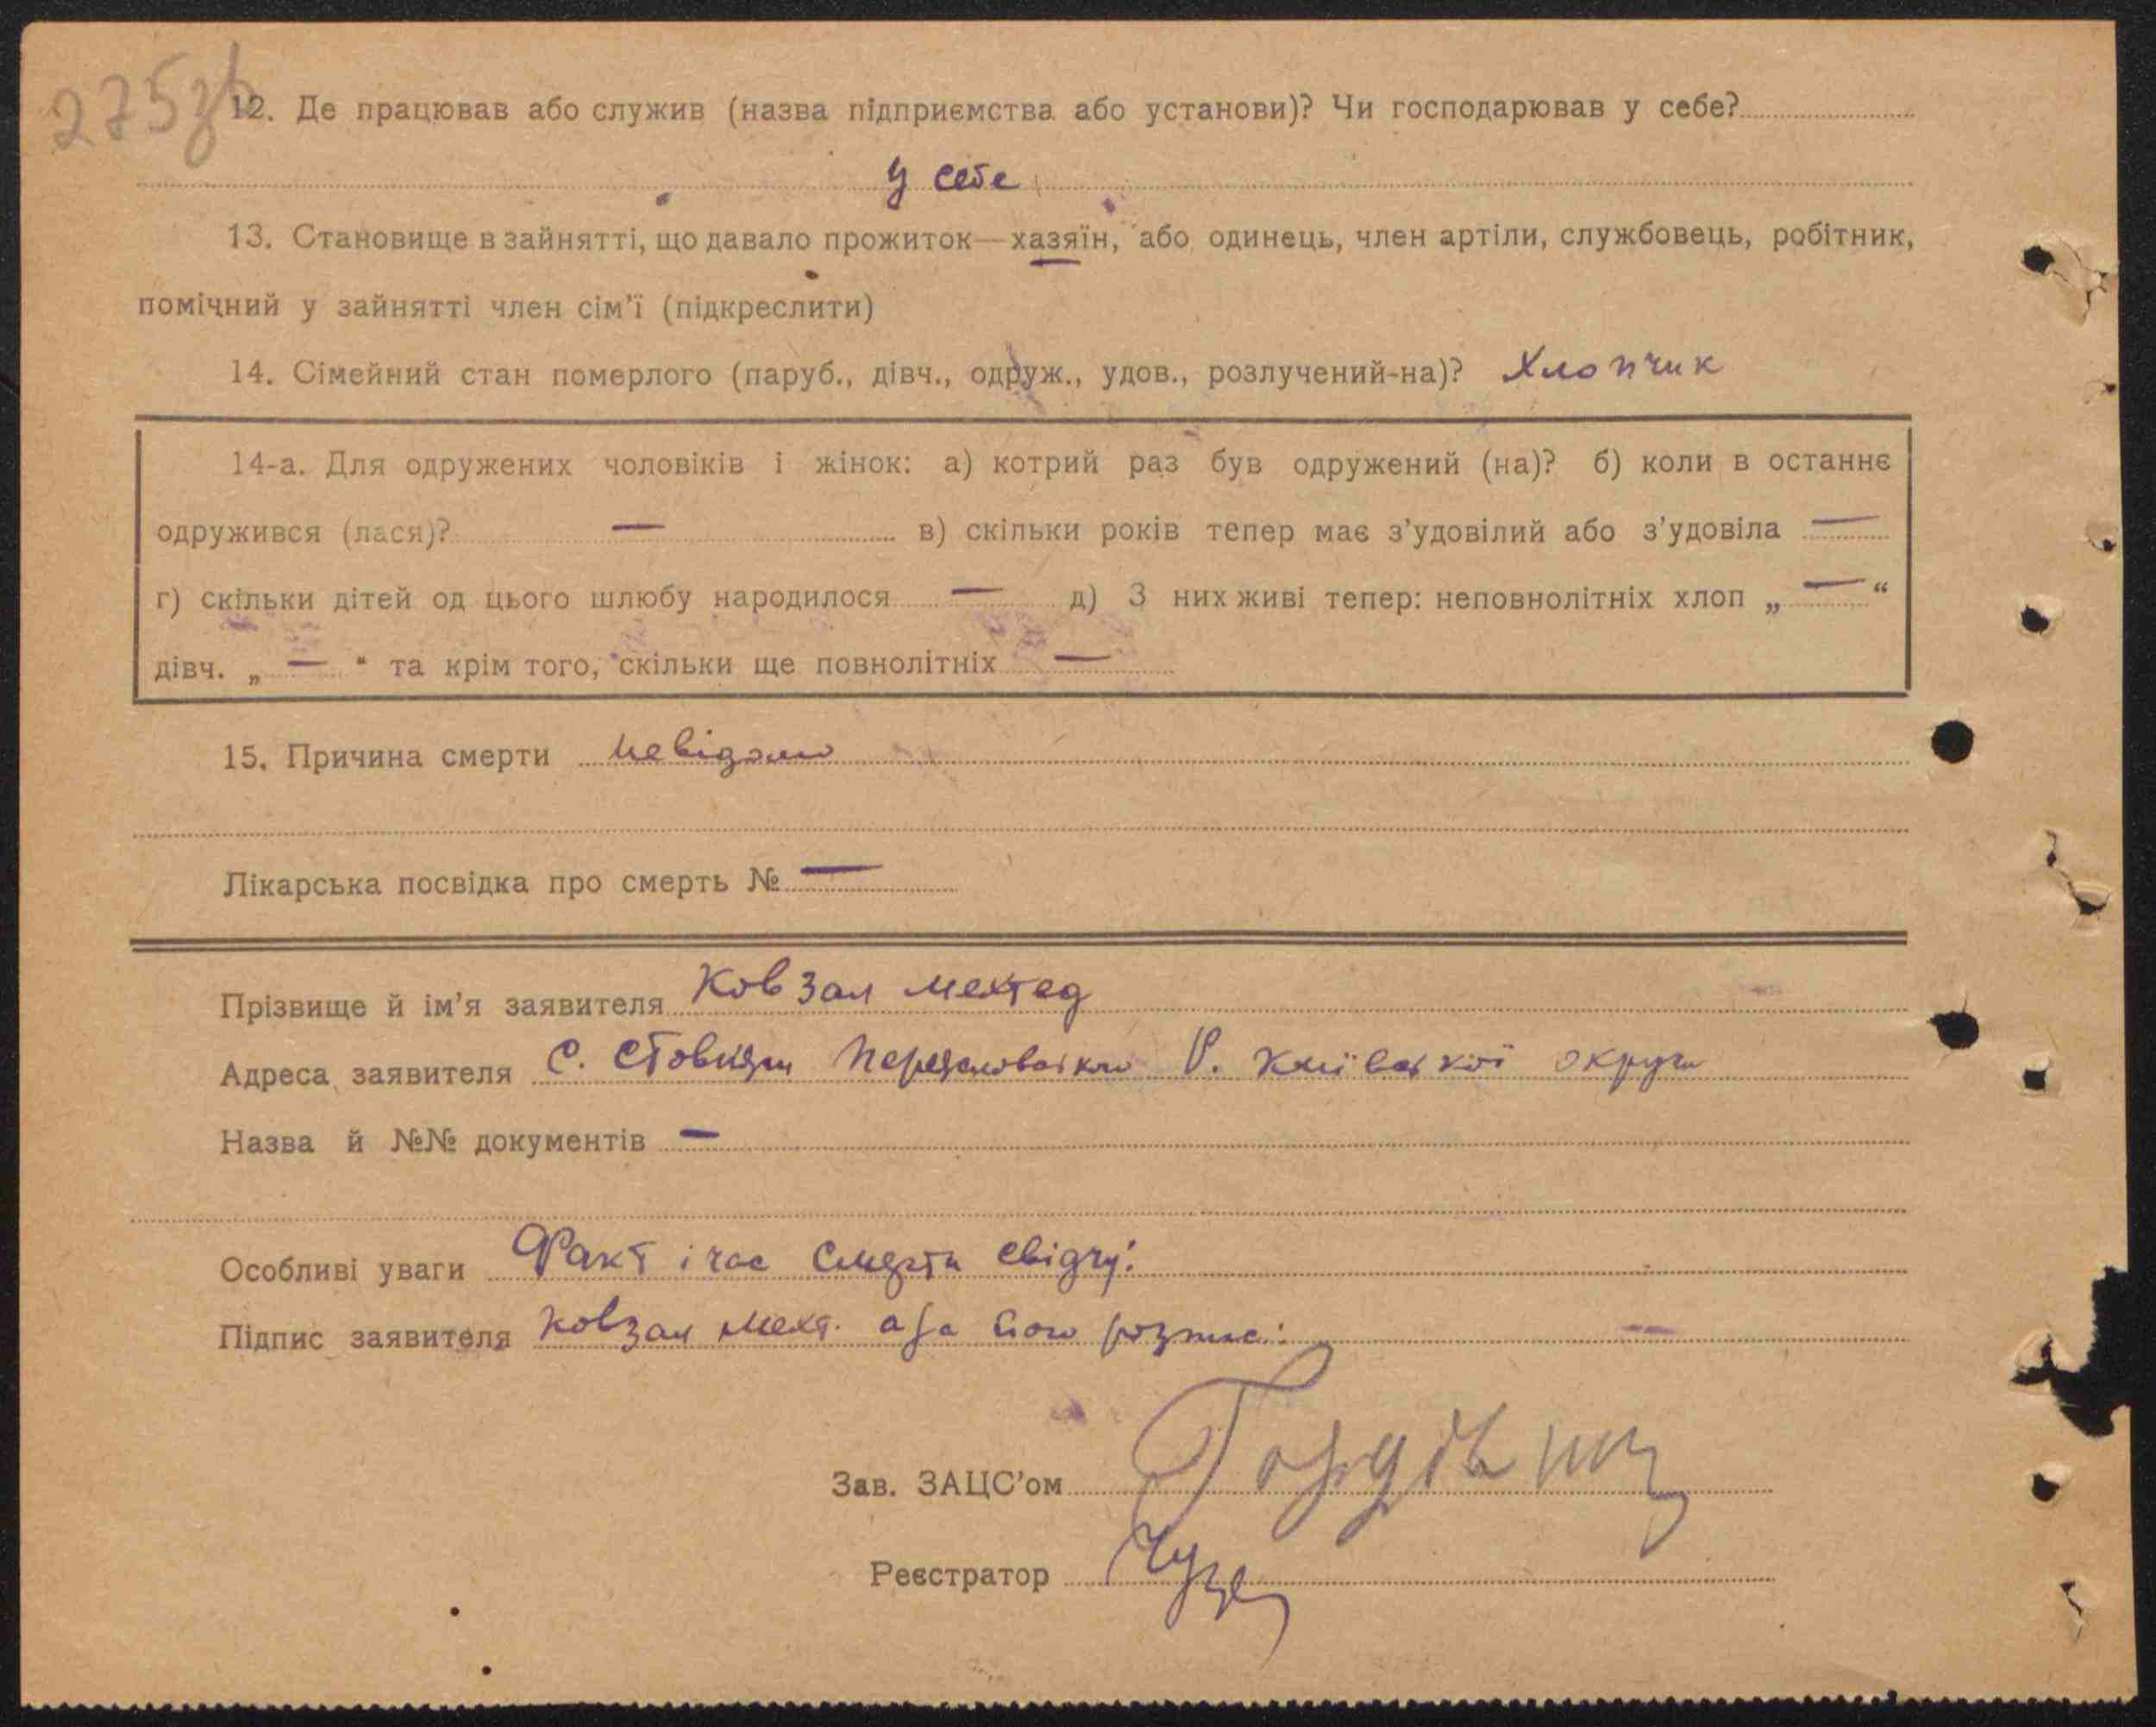 275зв
12. Де працював або служив (назва підприємства або установи)? Чи господарював у себе?
у себе
13. Становище в зайнятті, що давало прожиток—хазяїн, або одинець, член артіли, службовець, робітник,
помічний у зайнятті член сім'ї (підкреслити)
14. Сімейний стан померлого (паруб., дівч., одруж., удов., розлучений-на)? Хлопчик
14-а. Для одружених чоловіків і жінок: а) котрий раз був одружений (на)? б) коли в останнє
одружився (лася)? — в) скільки років тепер має з'удовілий або з'удовіла —
г) скільки дітей од цього шлюбу народилося — д) З них живі тепер: неповнолітніх хлоп „ — "
дівч. „ — " та крім того, скільки ще повнолітніх —
15. Причина смерти невідомо
Лікарська посвідка про смерть № —
Прізвище й ім'я заявителя Ковзал Мехтед
Адреса заявителя С. Стовпяги Р. Київської округи
Назва й №№ документів —
Особливі уваги Факт і час смерти свідчу:
Підпис заявителя Ковзал Мехт.
Зав. ЗАЦС'ом
Реєстратор